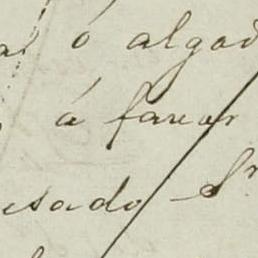 ó algod
á favor
esado Sr